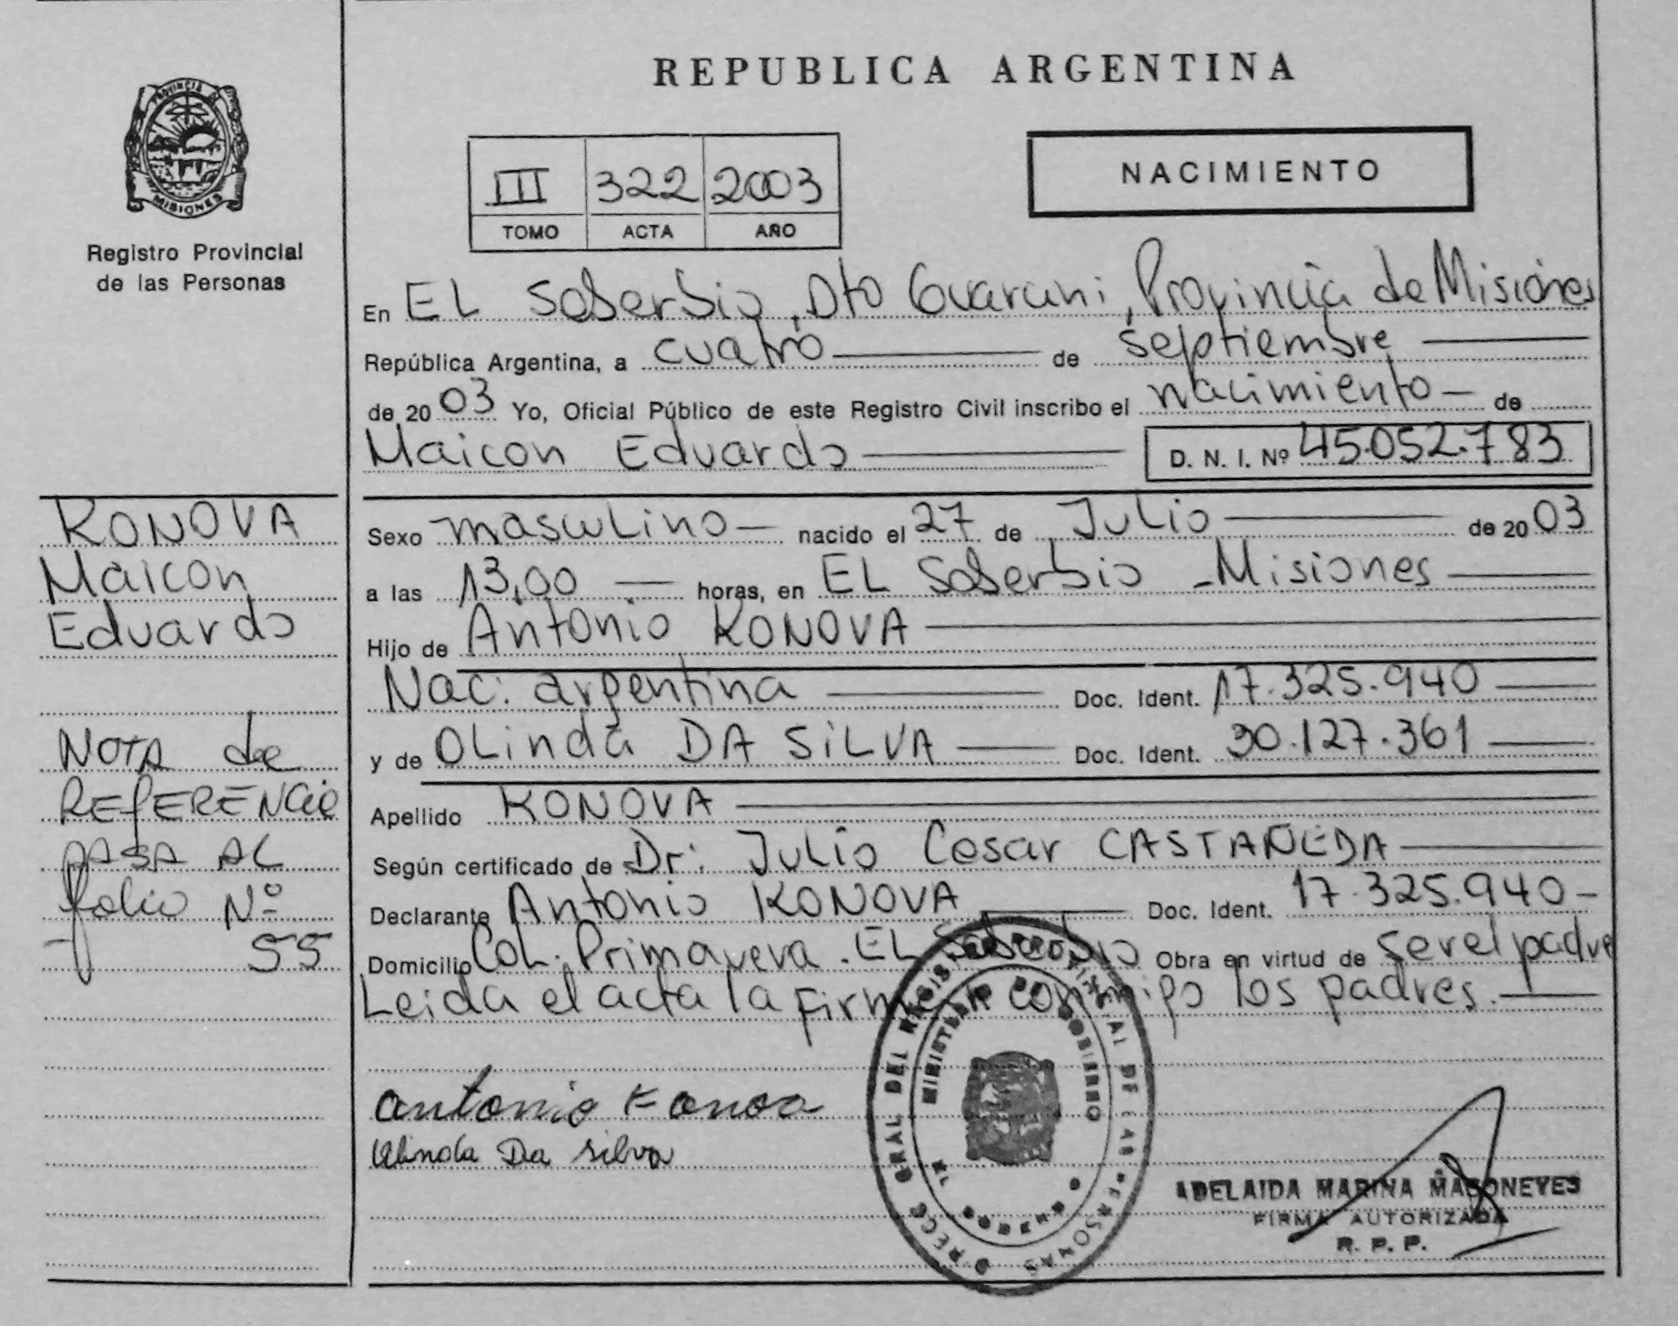 REPUBLICA ARGENTINA
PROVINCIA DE
MISIONES
Registro Provincial
de las Personas
III 322 2003
TOMO ACTA AÑO
NACIMIENTO
En EL Soberbio, Dto Guarani, Provincia de Misiones
República Argentina, a cuatro de septiembre
de 2003 Yo, Oficial Público de este Registro Civil inscribo el nacimiento de
Maicon Eduardo D. N. I. Nº 45.052.783
Sexo masculino nacido el 27 de Julio de 2003
a las 13,00 horas, en EL Soberbio - Misiones
Hijo de Antonio KONOVA
Nac: argentina Doc. Ident. 17.325.940
y de OLinda DA SiLVA Doc. Ident. 30.127.361
Apellido KONOVA
Según certificado de Dr: Julio Cesar CASTAÑEDA
Declarante Antonio KONOVA Doc. Ident. 17.325.940-
Domicilio Col. Primavera. EL Soberbio Obra en virtud de ser el padre
Leida el acta la firman conmigo los padres.
KONOVA
Maicon
Eduardo
NOTA de
REFERENCIA
PASA AL
folio Nº
55
antonio
Olinda Da silva
GRAL DEL REGISTRO PROVINCIAL DE LAS PERSONAS
MINISTERIO DE GOBIERNO
ADELAIDA MARINA
FIRMA AUTORIZADA
R. P. P.